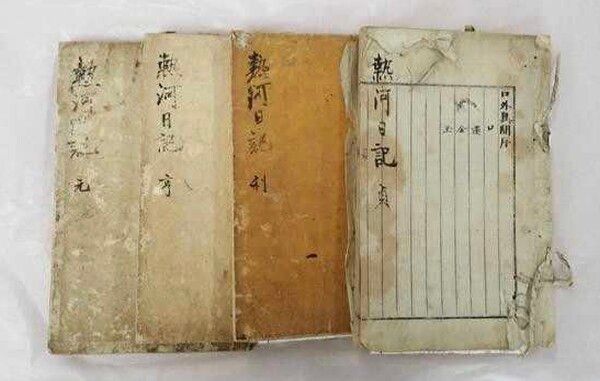 熱河日記 元
熱河日記 亨
熱河日記 利
熱河日記 貞
口外異聞序